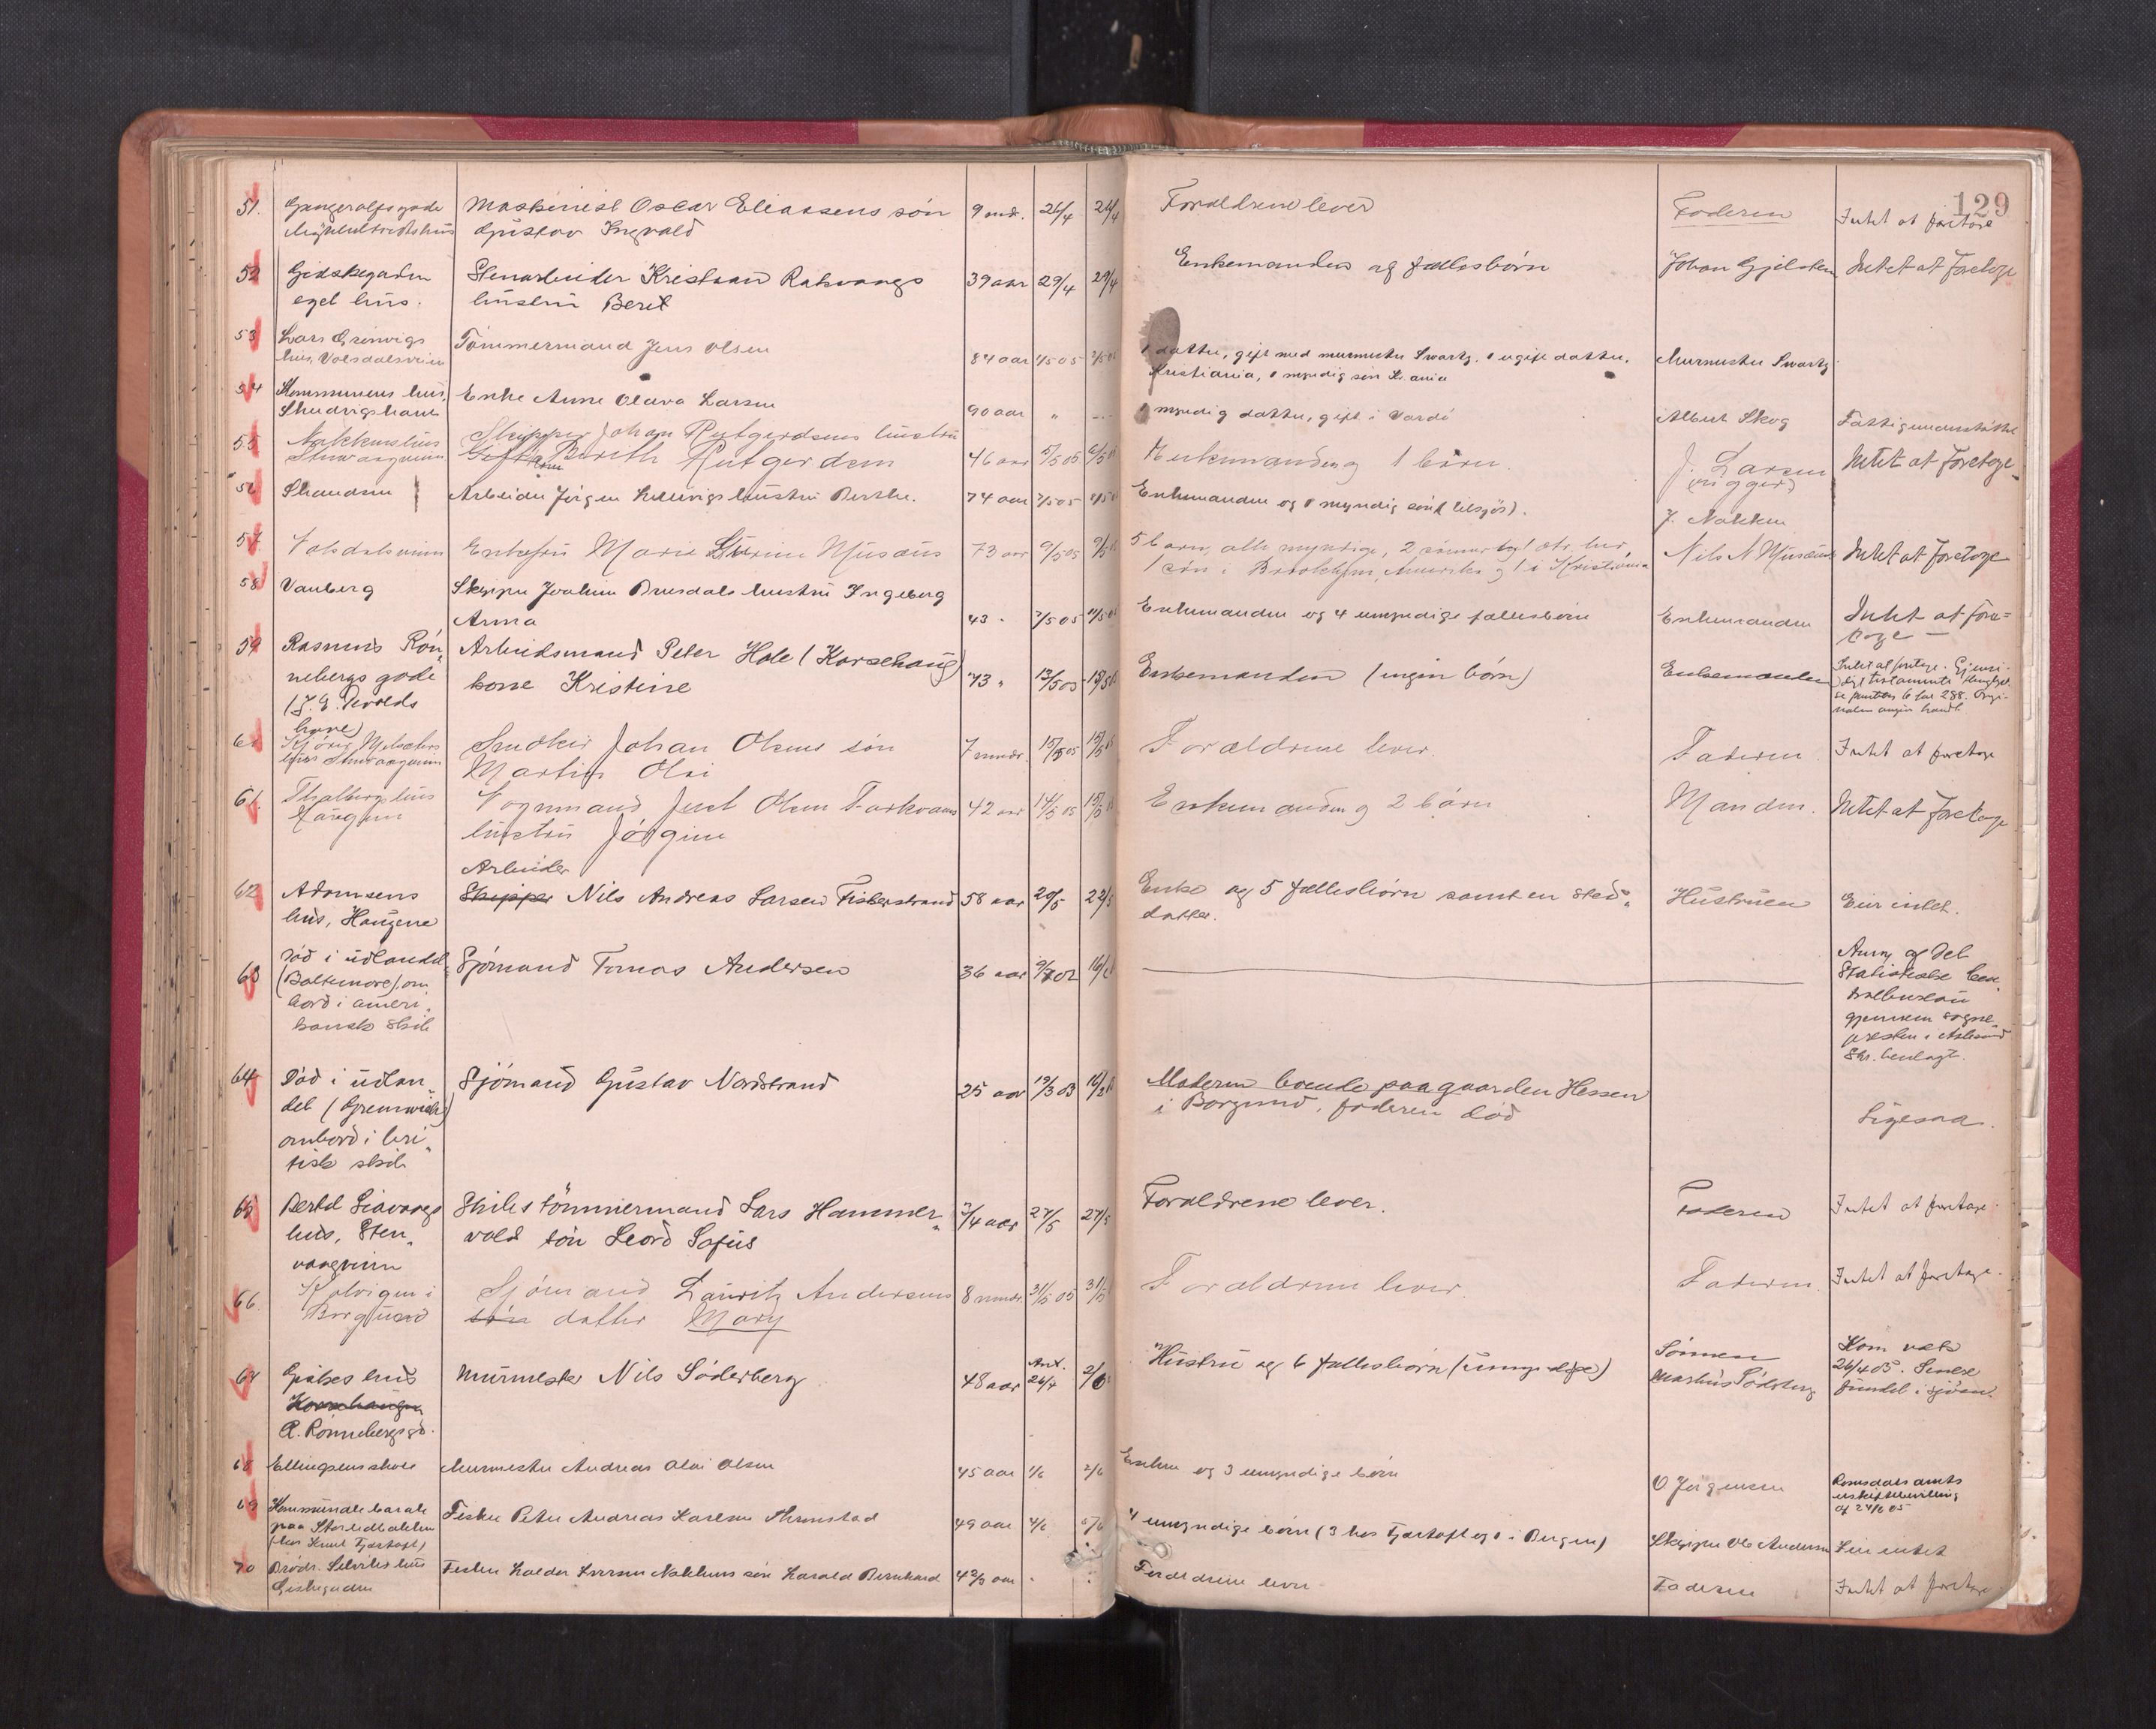 129
51. Gangerolfsgade Maskinist Oscar Eliassens søn 9 md. 26/4 26/4 Forældrene lever Faderen Intet at foretage
Gustav Ingvald
52 Gidskegaden Stenarbeider Kristian Rakvaags 39 aar 29/4 29/4 Enkemanden og fællesbörn Johan Gjelsten Intet at foretage
eget hus. hustru Berit
53 Lars Grönvigs Tömmermand Jens Olsen 84 aar 4/5 05 1 datter, gift med murmester Swartz. 1 ugift datter, Murmester Swartz
hus, Volsdalsveien Kristiania, 1 myndig sön Kr.ania
54 Kommunens hus, Enke Anne Olava Larsen 90 aar " 1 myndig datter, gift i Vardö Albert Skog Fattigunderstöttet
55 Nakkens hus Skipper Johan Rutgerdsens hustru
Stenvaagveien Berith Rutgerdsen 46 aar 5/5 05 6/5 05 Enkemanden og 1 barn. J. Larsen Intet at foretage
(rigger)
56 Stranden Arbeider Jörgen Hellevigs hustru Berthe. 74 aar 7/5 05 Enkemanden og 1 myndig sön (tilsjös). J. Nakken
57 Volsdalsveien Enkefru Marie Musæus 73 aar 9/5 05 9/5 05 5 barn, alle myndige, 2 sönner og 1 dtr. her, Nils N Musæus Intet at foretage
1 sön i Brooklyn, Amerika og 1 i Kristiania
58 Vanberg Skipper Joakim Brusdals hustru Ingeborg
Anna 43 " 7/5 05 11/5 05 Enkemanden og 4 umyndige fællesbörn Enkemanden Intet at fore=
tage —
59 Rasmus Røn„ Arbeidsmand Peter Hole (Korsehaug)
nebergs gade kone Kristine 73 " 13/5 05 15/5 05 Enkemanden (ingen börn) Enkemanden Intet at foretage. Gjensi-
digt testamente
have)
60 Snedker Johan Olsens sön 7 mndr. 15/5 05 15/5 05 Forældrene lever. Faderen Intet at foretage
Martin Olai
61 Thalbergs hus Vognmand Juel Olsen Farkvams 42 aar 14/5 05 15/5 05 Enkemanden og 2 börn Manden. Intet at foretage
hustru Jörgine
Arbeider
62 Adamsens Skipper Nils Andreas Larsen Fiskerstrand 58 aar 20/5 22/5 Enke og 5 fællesbörn samt en sted„ Hustruen Eier intet.
hus, Haugene datter.
63 Död i udlandet Sjömand Tomas Andersen 36 aar 9/7 02 16/ Anm. af det
(Baltimore), om Statistiske Cen„
bord i ameri„ tralbureau
kansk skib gjennem sogne
presten i Aalesund
Skr. henlagt.
64 Död i udlan„ Sjömand Gustav Nordstrand 25 aar 19/3 03 Moderen boende paa gaarden Hessen
det (Greenwich) i Borgund, faderen död Ligesaa.
ombord i bri„
tisk skib
65 Bertel Liavaags Skibstömmermand Lars Hammer„ 3/4 aar 27/5 27/5 Forældrene lever. Faderen Intet at foretage
hus, Sten„ vold sön Leord Sofus
vaagveien
66. Kalvigen i Sjömand Lauritz Andersens 8 mndr. 31/5 05 31/5 Forældrene lever. Faderen Intet at foretage.
Borgund sön datter Mary
67 Gjökes hus Murmester Nils Söderberg 48 aar Ant. 26/4 2/6 Hustru og 6 fællesbörn (umyndige) Sönnen Kom væk
Korsehaugen Markus Söderberg 26/4 05. Senere
R. Rönnebergs gd. fundet i sjöen.
68 Ellingsens hus Murmester Andreas Olai Olsen 45 aar 1/6 2/6 Enken og 3 umyndige börn O Jörgensen Romsdals amts
uskiftebevilling
af 24/6 05
69 Kommunale barak Fisker Peter Andreas Karlsen 49 aar 4/6 5/6 4 umyndige börn (3 hos Fjærtoft og 1 i Bergen) Skipper Ole Andersen Eier intet
(hos Knut Fjærtoft)
70 Brödr. Selvikes hus Fisker Peder Iversen Nakkens sön Harald Bernhard 4 2/3 aar Forældrene lever Faderen Intet at foretage
Giskegaden